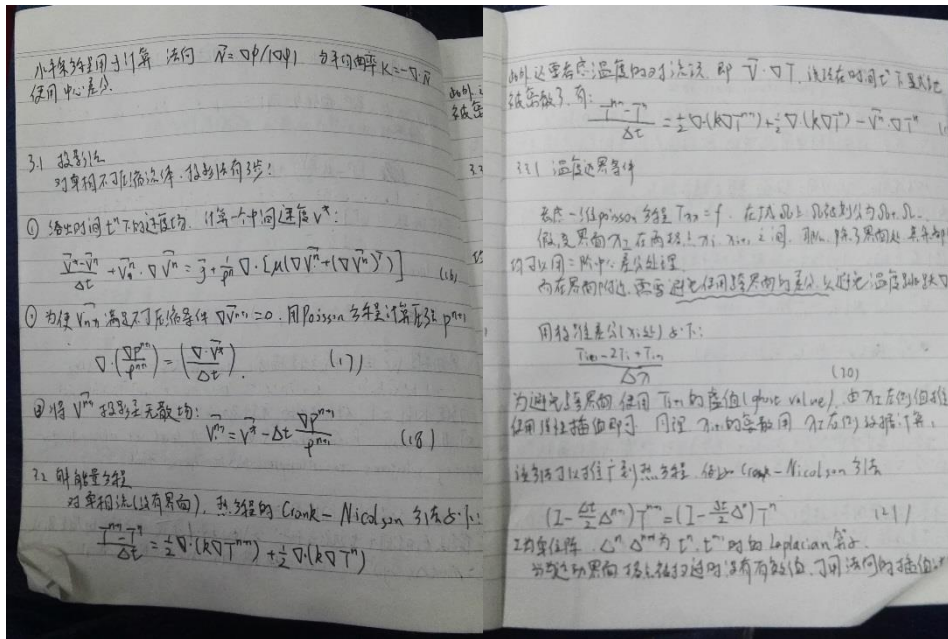 水平集方程用于计算 法向 N⃗=∇φ/|∇φ| 与平均曲率 K=-∇·N⃗
使用中心差分.
3.1 投影法
对单相不可压缩流体,投影法有3步:
① 给出时间 tⁿ 下的速度场, 计算一个中间速度 v*:
(V⃗*-V⃗ⁿ)/Δt + V⃗ⁿ·∇V⃗ⁿ = g⃗ + 1/ρⁿ ∇·[μ(∇V⃗ⁿ+(∇V⃗ⁿ)ᵀ)] (16)
为使 V⃗ⁿ⁺¹ 满足不可压缩条件 ∇V⃗ⁿ⁺¹=0, 用Poisson方程计算压强 Pⁿ⁺¹
∇·(∇Pⁿ⁺¹/ρⁿ⁺¹) = (∇·V⃗*/Δt). (17)
③ 将 V⃗ⁿ⁺¹ 投影至无散场:
V⃗ⁿ⁺¹ = V⃗* - Δt ∇Pⁿ⁺¹/ρⁿ⁺¹ (18)
3.2 解能量方程
对单相流(没有界面), 热方程的 Crank-Nicolson 方法如下:
(Tⁿ⁺¹-Tⁿ)/Δt = ½∇·(k∇Tⁿ⁺¹) + ½∇·(k∇Tⁿ)
此外 还要考虑温度的对流项, 即 V⃗·∇T, 该项在时间 tⁿ 下显式地
被离散了, 有:
(Tⁿ⁺¹-Tⁿ)/Δt = ½∇·(k∇Tⁿ⁺¹) + ½∇·(k∇Tⁿ) - V⃗ⁿ·∇Tⁿ
温度边界条件
考虑一维poisson方程 Txx=f, 在域Ω上 Ω被划分为Ω₊, Ω₋
假设界面 x_I 在两格点 xᵢ, xᵢ₊₁ 之间, 除了界面处
均可以用二阶中心差分处理
而在界面附近, 需要避免使用跨界面的差分, 以避免温度
用标准差分(xᵢ处)如下:
(Tᵢ₋₁-2Tᵢ+Tᵢ₊₁)/Δx (20)
为避免跨界面 使用 Tᵢ₊₁ 的虚值(ghost value), 由 x_I 左侧值推
使用线性插值即可, 同理 xᵢ₊₁ 的离散用 x_I 右侧数据计算,
该方法可以推广到热方程, 例如 Crank-Nicolson 方法
(I-Δt/2 Δⁿ⁺¹)Tⁿ⁺¹ = (I-Δt/2 Δⁿ)Tⁿ (21)
I为单位阵, Δⁿ, Δⁿ⁺¹ 为 tⁿ, tⁿ⁺¹ 时的 Laplacian 算子.
格点被扫过时没有有效值, 可用法向的插值